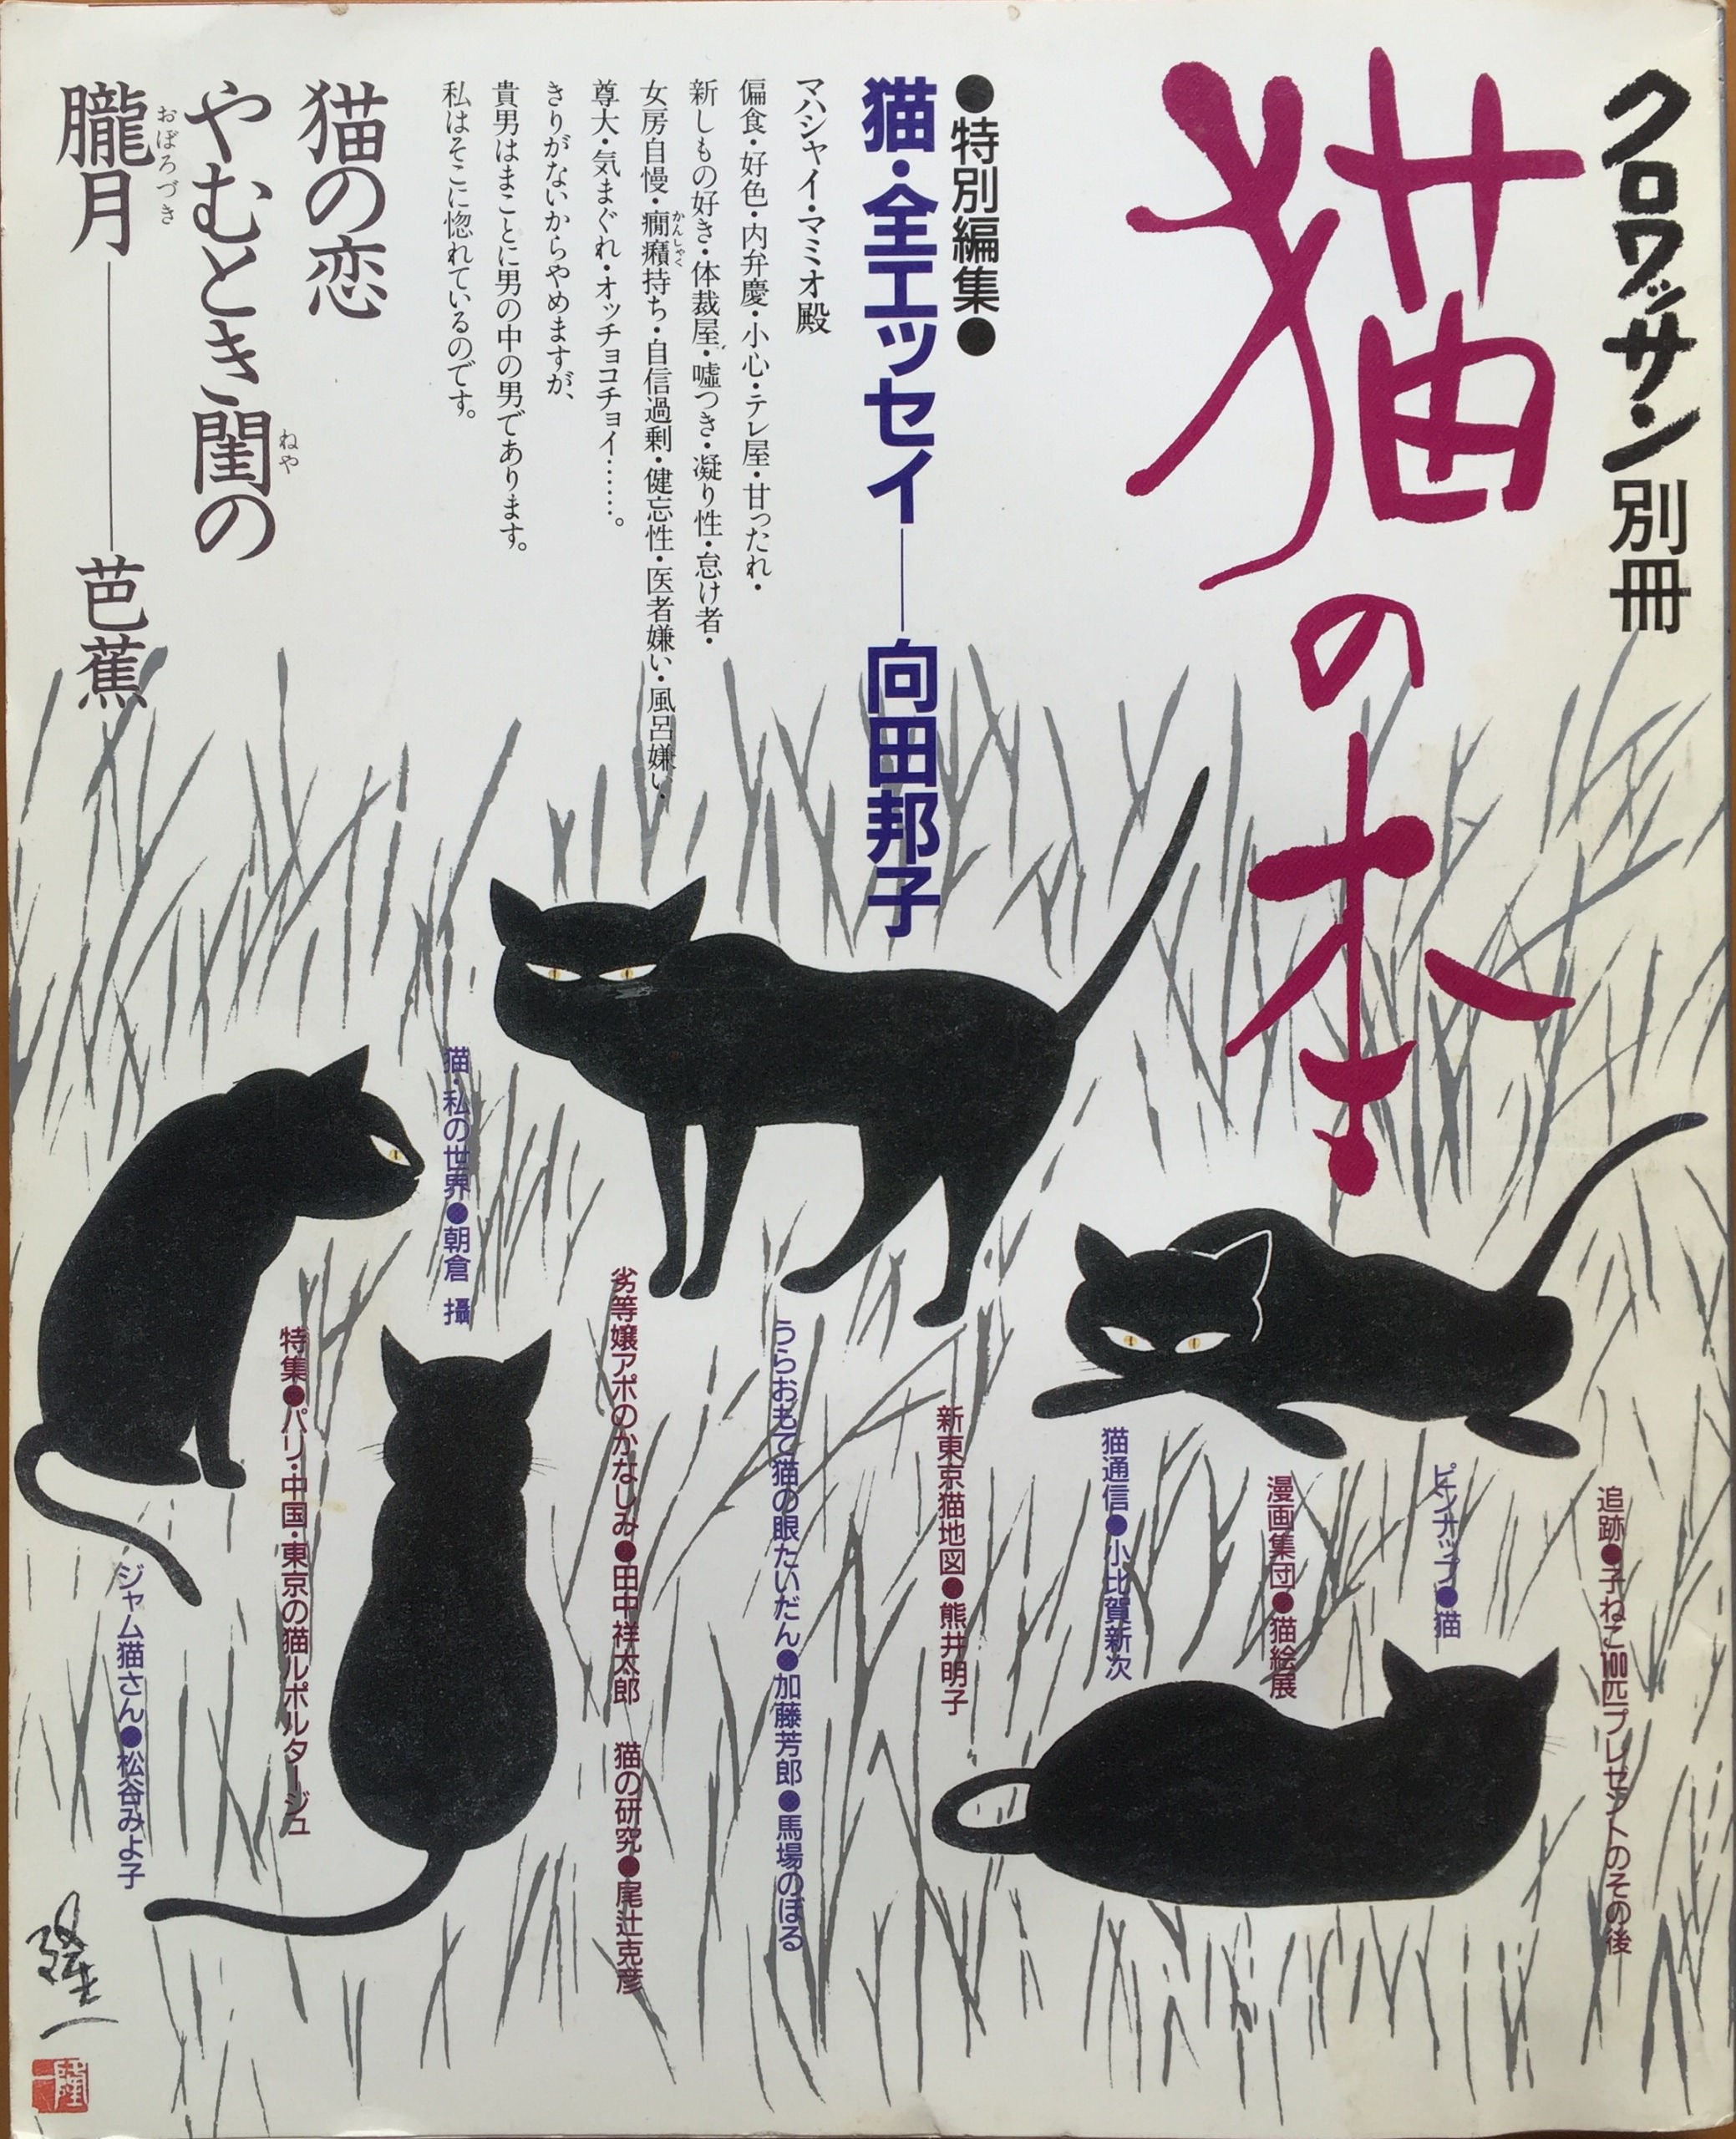 クロワッサン別冊
猫の本
●特別編集●
猫・全エッセイ――向田邦子
マハシャイ・マミオ殿
偏食・好色・内弁慶・小心・テレ屋・甘ったれ・
新しもの好き・体裁屋・嘘つき・凝り性・怠け者・
女房自慢・癇癪持ち・自信過剰・健忘性・医者嫌い・風呂嫌い・
かんしゃく
尊大・気まぐれ・オッチョコチョイ……。
きりがないからやめますが、
貴男はまことに男の中の男であります。
私はそこに惚れているのです。
猫の恋
やむとき閨の
ねや
朧月――芭蕉
おぼろづき
追跡●子ねこ100匹プレゼントのその後
ピンナップ●猫
漫画集団●猫絵展
猫通信●小比賀新次
新東京猫地図●熊井明子
うらおもて猫の眼たいだん●加藤芳郎●馬場のぼる
劣等嬢アポのかなしみ●田中祥太郎
猫の研究●尾辻克彦
猫・私の世界●朝倉 攝
特集●パリ・中国・東京の猫ルポルタージュ
ジャム猫さん●松谷みよ子
隆一
隆一